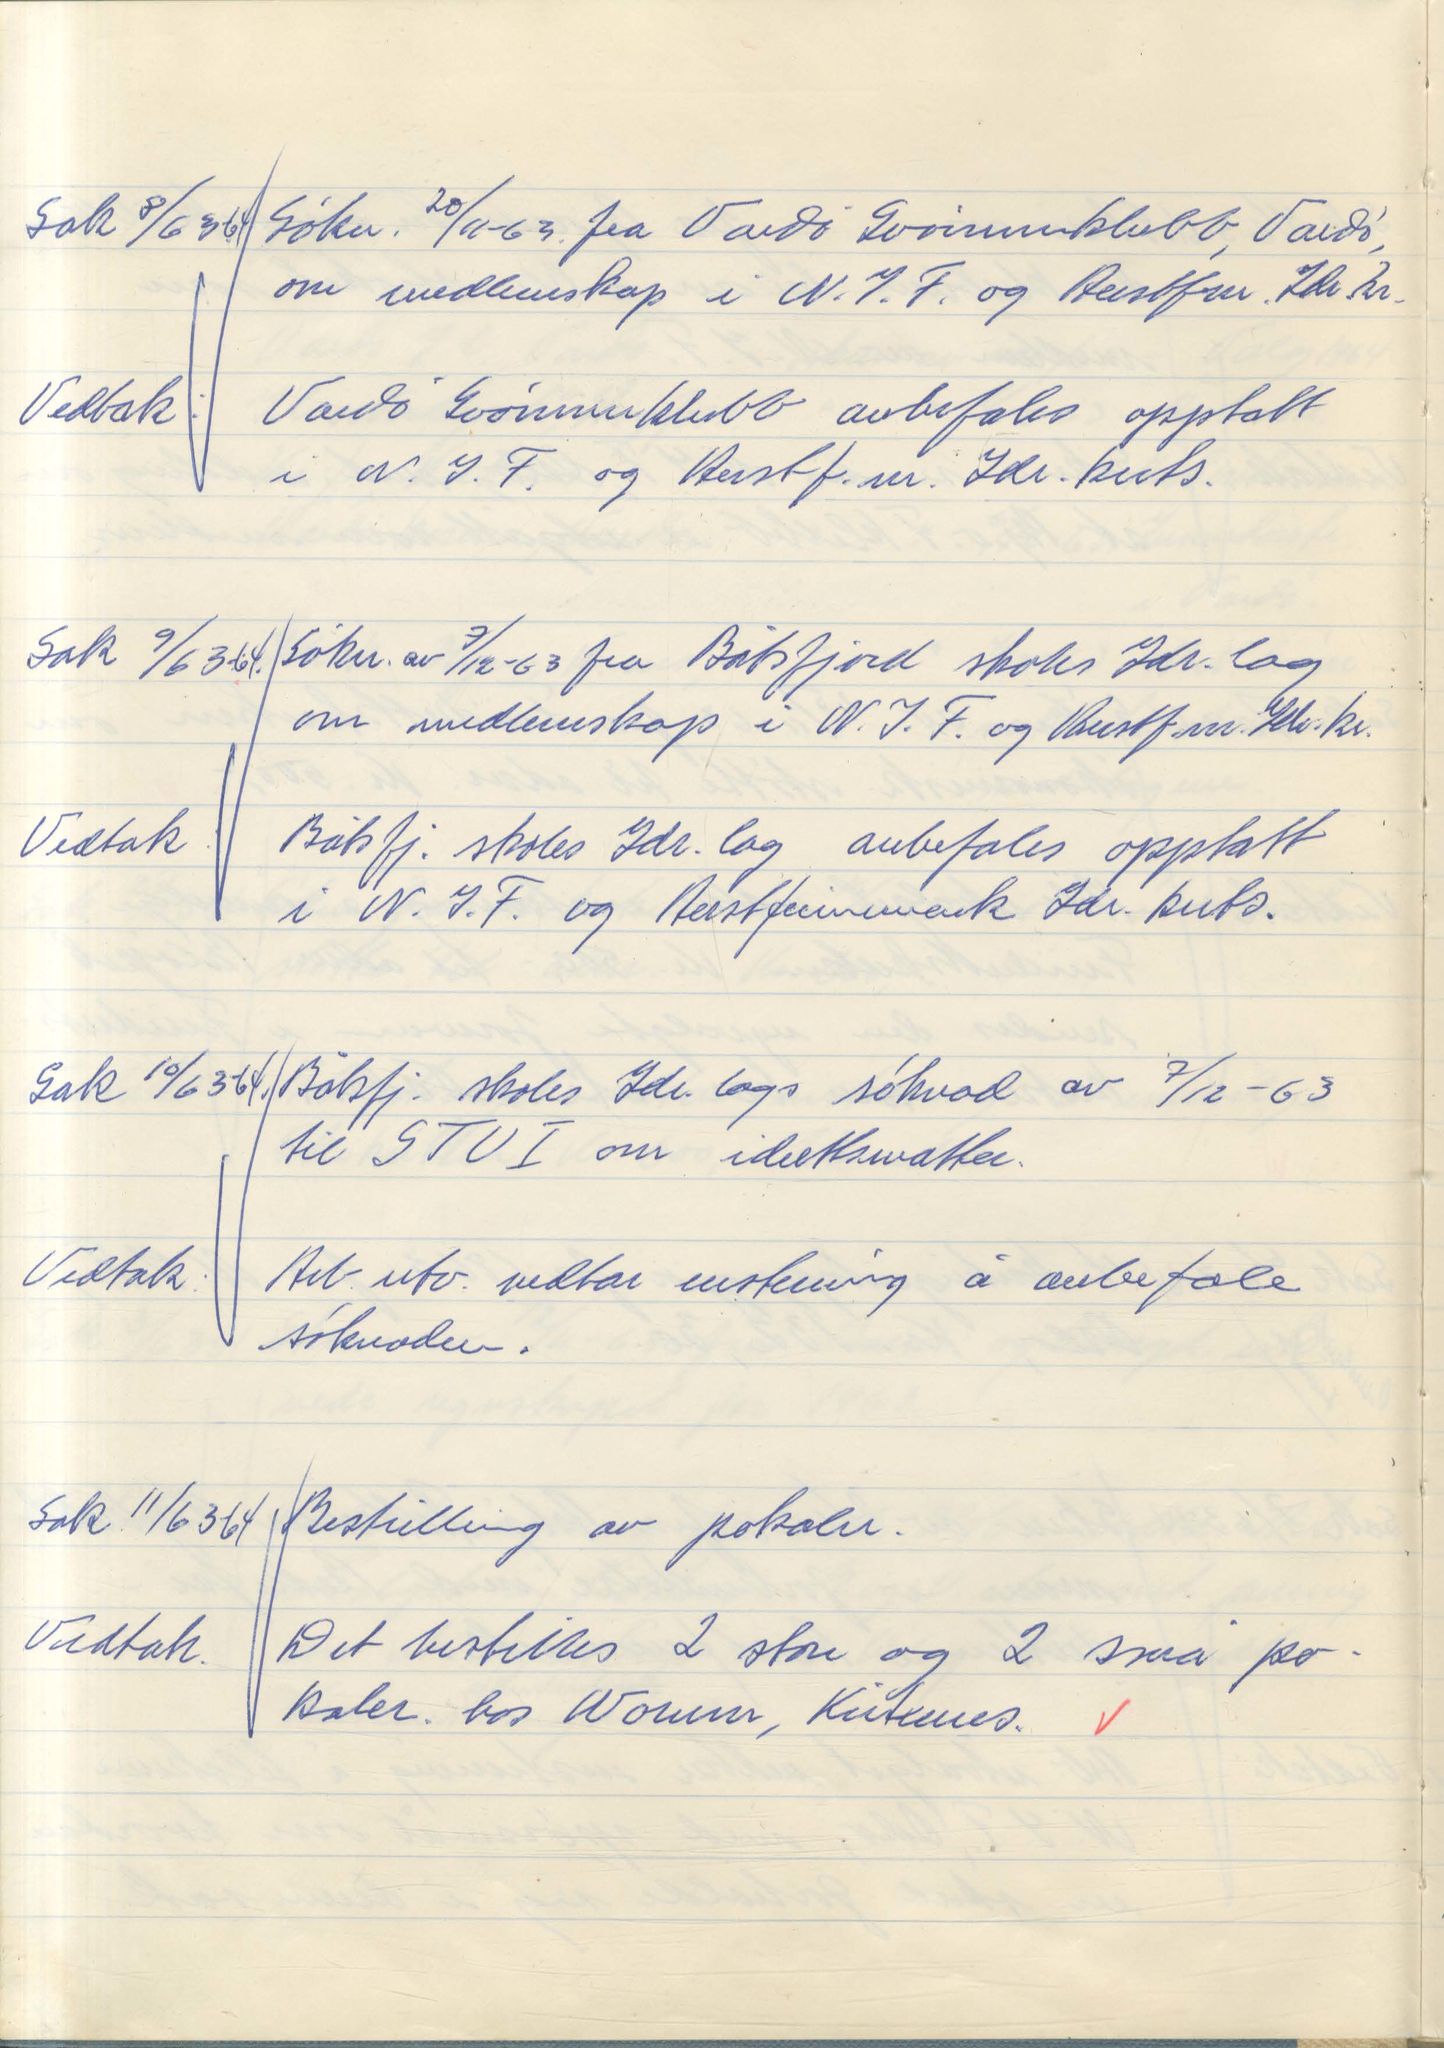 Sak 8/63-64 Søkn. 20/11-63 fra Vardø Svømmeklubb, Vardø,
om medlemskap i N.I.F. og Austfinnm. Idr.kr.
Vedtak: Vardø Svømmeklubb anbefales opptatt
i N.I.F. og Austf.m. Idr.krets.
Sak 9/63-64. Søkn. av 7/12-63 fra Båtsfjord skoles Idr.lag
om medlemskap i N.I.F. og Austf.m. Idr.kr.
Vedtak: Båtsfj. skoles Idr.lag anbefales opptatt
i N.I.F. og Austfinnmark Idr.krets.
Sak 10/63-64. Båtsfj. skoles Idr.lags søknad av 7/12-63
til STUI om idrettsmatter.
Vedtak: Arb.utv. vedtar enstemmig å anbefale
søknaden.
Sak 11/63-64 Bestilling av pokaler.
Vedtak. Det bestilles 2 store og 2 små po-
kaler hos Wormr, Kirkenes.